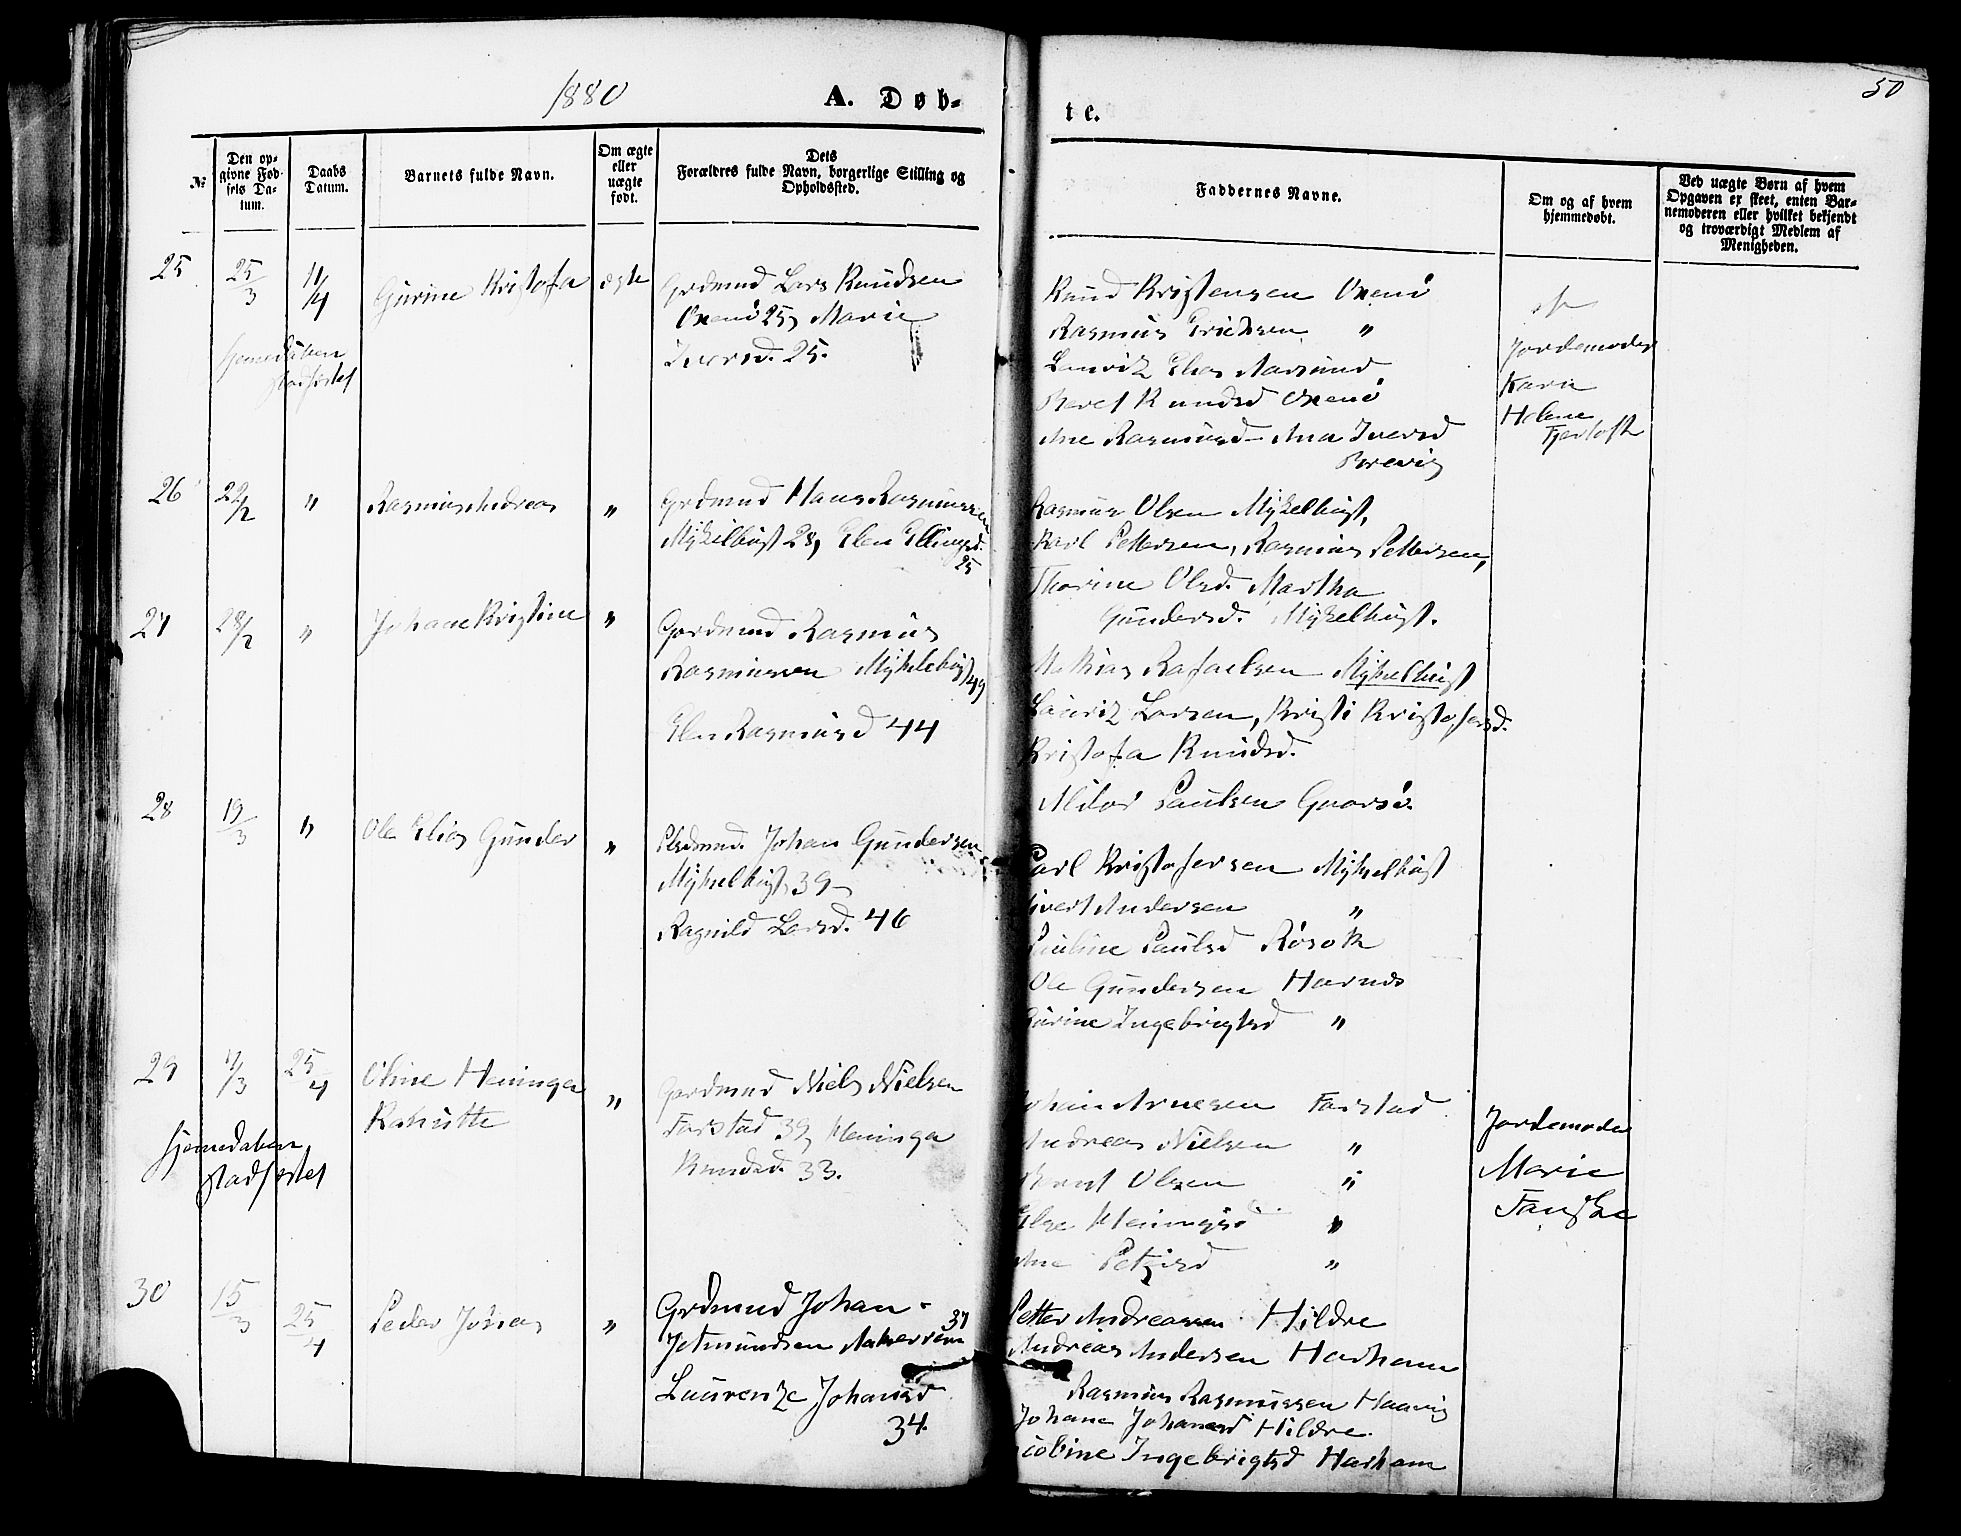 1880
A. Døb-
te.
50
№
Den op-
givne Fød-
sels Da-
tum.
Daabs
Datum.
Barnets fulde Navn.
Om ægte
eller
uægte
født.
Dets
Forældres fulde Navn, borgerlige Stilling og
Opholdssted.
Faddernes Navne.
Om og af hvem
hjemmedøbt.
Ved uægte Børn af hvem
Opgaven er skeet, enten Bar-
nemoderen eller hvilket bekjendt
og troværdigt Medlem af
Menigheden.
25 25/3 11/4 Gurine Kristofa ægte
hjemedaben
stadfæstet
Grdmnd Lars Knudsen
Oxenö 25, Marie
Iversd. 25.
Knud Kristensen Oxenö
Rasmus Ericksen "
Lauritz Elias Aarsund
Beret Knudsd Oxenö
Ane Rasmusd- Ana Iversd
Brevig
Jordemoder
Karn
Helene
Fjertoft
26 22/2 " Rasmus Andreas "
Grdmnd Hans Rasmussen
Mykelbust 28, Elen Ellingsd.
25
Rasmus Olsen Mykelbust,
Karl Pettersen, Rasmus Pettersen,
Thorine Olsd. Martha
Gundersd. Mykelbust.
27 28/2 " Johane Kristine "
Gardmnd Rasmus
Rasmussen Myklebust 49
Elen Rasmusd 44
Mathias Rafaelsen Mykelbust
Lauritz Larsen, Kristi Kristofersd.
Kristofa Knudsd.
28 19/3 " Ole Elias Gunder "
Johan Gundersen
Mykelbust 39-
Ragnild Larsd. 46
Paulsen
Carl Kristofersen Mykelbust
Sivert Andersen "
Pauline Paulsd Røsok
Ole Gundersen Harnes
Ingebrigtsd "
29 11/3 25/4 Oline Heninga "
hjemedaben
stadfæstet
Gardmnd Niels Nielsen
Farstad 39, Heninga
Knudsd. 33.
Johan Arnesen Farstad
Andreas Nielsen "
Bernt Olsen "
Else Heningsd "
Ane "
Jordemoder
Marie
Fanske
30 15/3 25/4 Peder Johan "
Grdmnd Johan
37
Laurentze Johansd
34
Petter Andreassen Hildre
Andreas Andersen Harham
Rasmus Rasmussen Haavig
Johane Johansd Hildre.
Jacobine Ingebrigtsd Harham